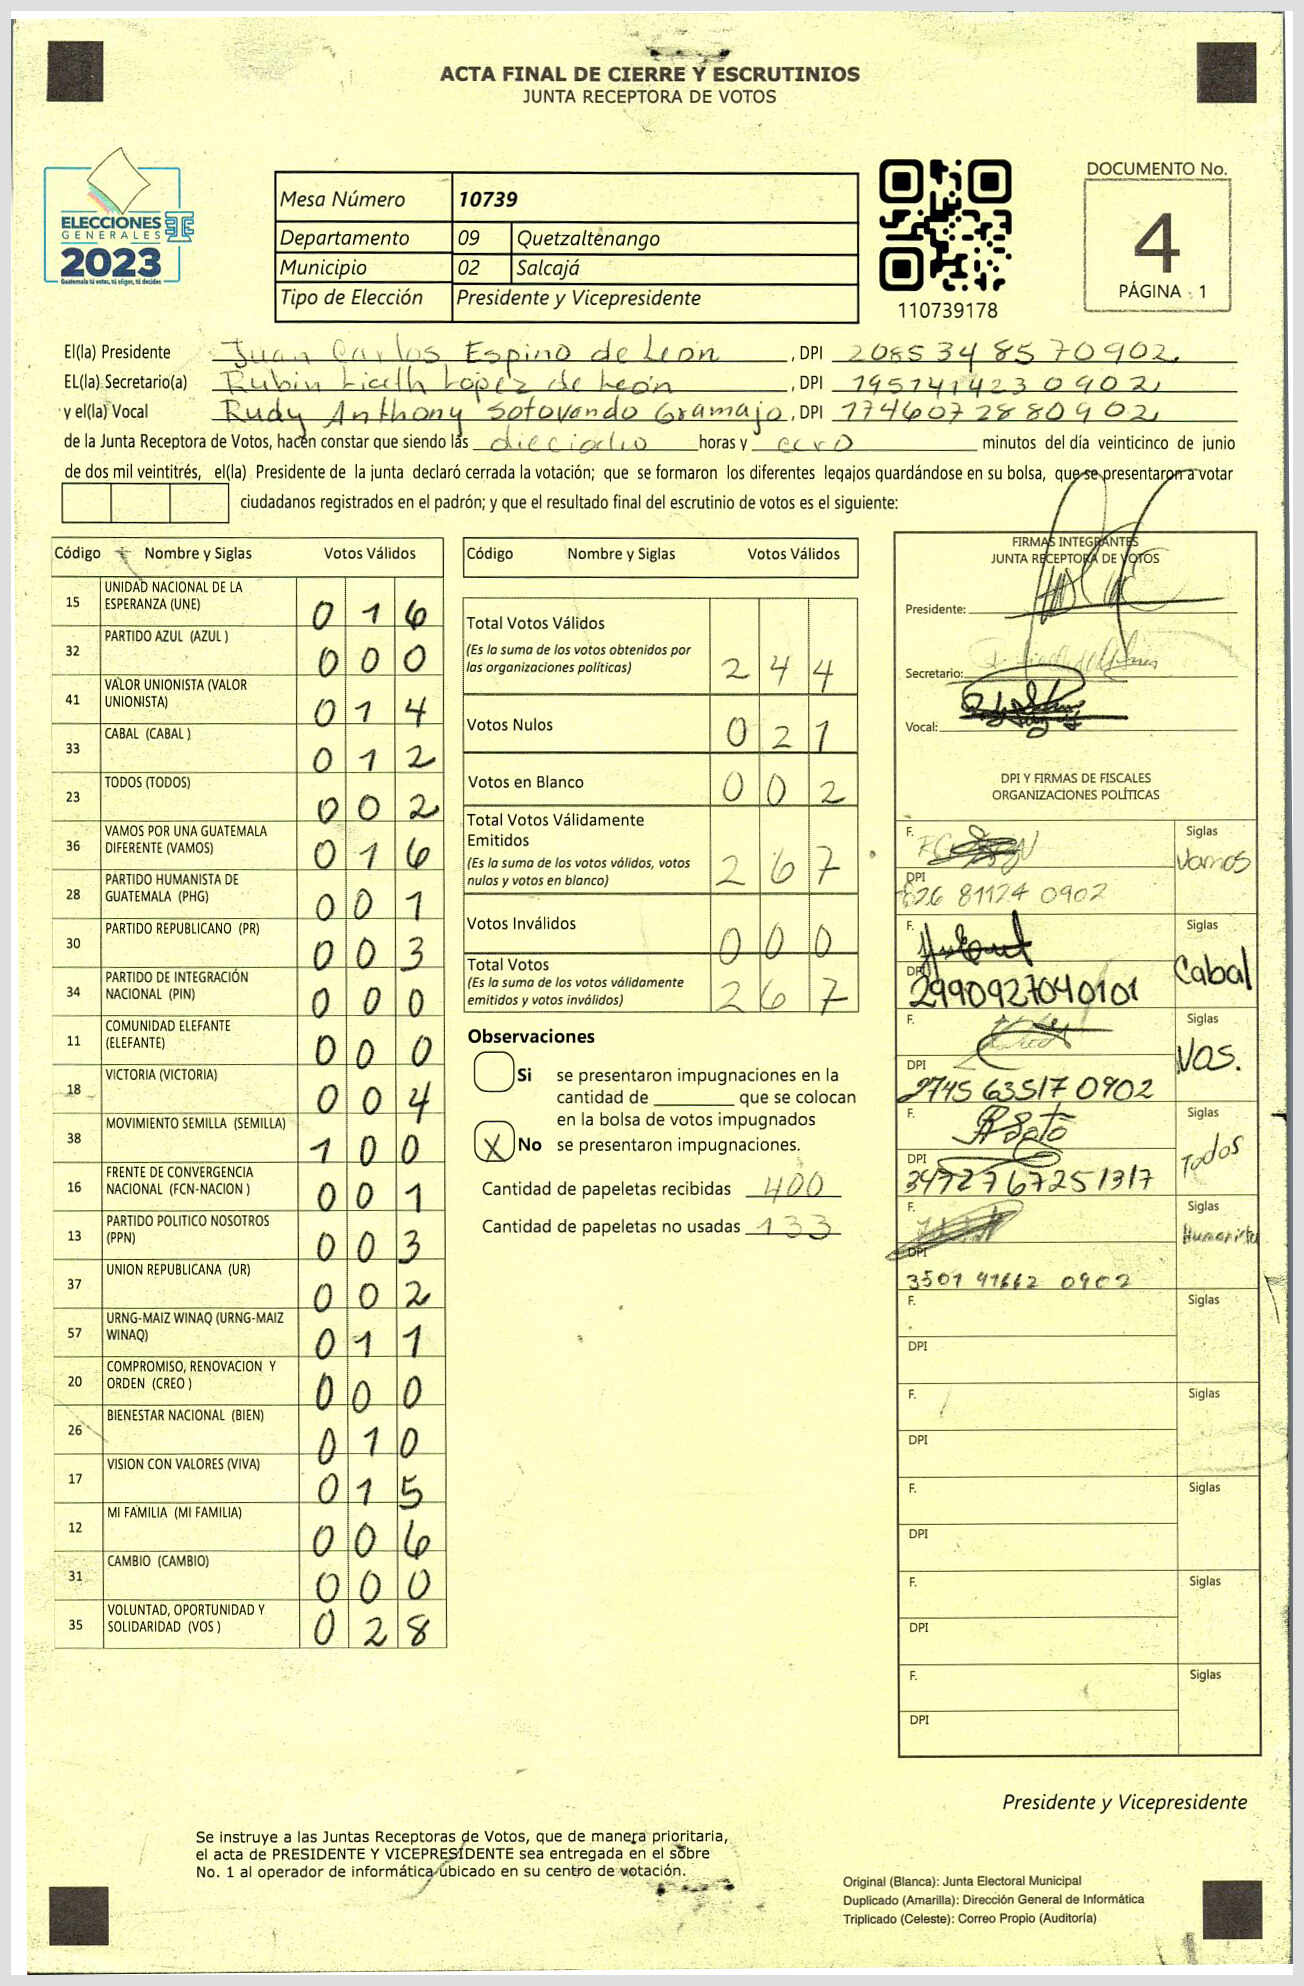 ACTA FINAL DE CIERRE Y ESCRUTINIOS
JUNTA RECEPTORA DE VOTOS
ELECCIONES
GENERALES
2023
Guatemala tú votas, tú eliges, tú decides
Mesa Número 10739
Departamento 09 Quetzaltenango
Municipio 02 Salcajá
Tipo de Elección Presidente y Vicepresidente
110739178
DOCUMENTO No.
4
PÁGINA 1
El(la) Presidente Juan Carlos Espino de León, DPI 2085348570902
EL(la) Secretario(a) Rubin Liceth López de León, DPI 1951414230902
y el(la) Vocal Rudy Anthony Sotovando Gramajo, DPI 1746072880902
de la Junta Receptora de Votos, hacen constar que siendo las dieciocho horas y cero minutos del día veinticinco de junio
de dos mil veintitrés, el(la) Presidente de la junta declaró cerrada la votación; que se formaron los diferentes legajos guardándose en su bolsa, que se presentaron a votar
ciudadanos registrados en el padrón; y que el resultado final del escrutinio de votos es el siguiente:
Código Nombre y Siglas Votos Válidos
15 UNIDAD NACIONAL DE LA ESPERANZA (UNE) 016
32 PARTIDO AZUL (AZUL ) 000
41 VALOR UNIONISTA (VALOR UNIONISTA) 014
33 CABAL (CABAL ) 012
23 TODOS (TODOS) 002
36 VAMOS POR UNA GUATEMALA DIFERENTE (VAMOS) 016
28 PARTIDO HUMANISTA DE GUATEMALA (PHG) 001
30 PARTIDO REPUBLICANO (PR) 003
34 PARTIDO DE INTEGRACIÓN NACIONAL (PIN) 000
11 COMUNIDAD ELEFANTE (ELEFANTE) 000
18 VICTORIA (VICTORIA) 004
38 MOVIMIENTO SEMILLA (SEMILLA) 100
16 FRENTE DE CONVERGENCIA NACIONAL (FCN-NACION ) 001
13 PARTIDO POLITICO NOSOTROS (PPN) 003
37 UNION REPUBLICANA (UR) 002
57 URNG-MAIZ WINAQ (URNG-MAIZ WINAQ) 011
20 COMPROMISO, RENOVACION Y ORDEN (CREO ) 000
26 BIENESTAR NACIONAL (BIEN) 010
17 VISION CON VALORES (VIVA) 015
12 MI FAMILIA (MI FAMILIA) 006
31 CAMBIO (CAMBIO) 000
35 VOLUNTAD, OPORTUNIDAD Y SOLIDARIDAD (VOS ) 028
Código Nombre y Siglas Votos Válidos
Total Votos Válidos 244
(Es la suma de los votos obtenidos por
las organizaciones políticas)
Votos Nulos 021
Votos en Blanco 002
Total Votos Válidamente
Emitidos 267
(Es la suma de los votos válidos, votos
nulos y votos en blanco)
Votos Inválidos 000
Total Votos 267
(Es la suma de los votos válidamente
emitidos y votos inválidos)
Observaciones
Si se presentaron impugnaciones en la
cantidad de ________ que se colocan
en la bolsa de votos impugnados
X No se presentaron impugnaciones.
Cantidad de papeletas recibidas 400
Cantidad de papeletas no usadas 133
FIRMAS INTEGRANTES
JUNTA RECEPTORA DE VOTOS
Presidente:
Secretario:
Vocal:
DPI Y FIRMAS DE FISCALES
ORGANIZACIONES POLÍTICAS
F. Siglas
Vamos
DPI
26 81124 0902
F. Siglas
Cabal
DPI
2990927040101
F. Siglas
VOS.
DPI
2745 63517 0902
F. Siglas
Todos
DPI
3472767251317
F. Siglas
Humanista
DPI
3501 91662 0902
F. Siglas
DPI
F. Siglas
DPI
F. Siglas
DPI
F. Siglas
DPI
F. Siglas
DPI
Presidente y Vicepresidente
Se instruye a las Juntas Receptoras de Votos, que de manera prioritaria,
el acta de PRESIDENTE Y VICEPRESIDENTE sea entregada en el sobre
No. 1 al operador de informática ubicado en su centro de votación.
Original (Blanca): Junta Electoral Municipal
Duplicado (Amarilla): Dirección General de Informática
Triplicado (Celeste): Correo Propio (Auditoría)